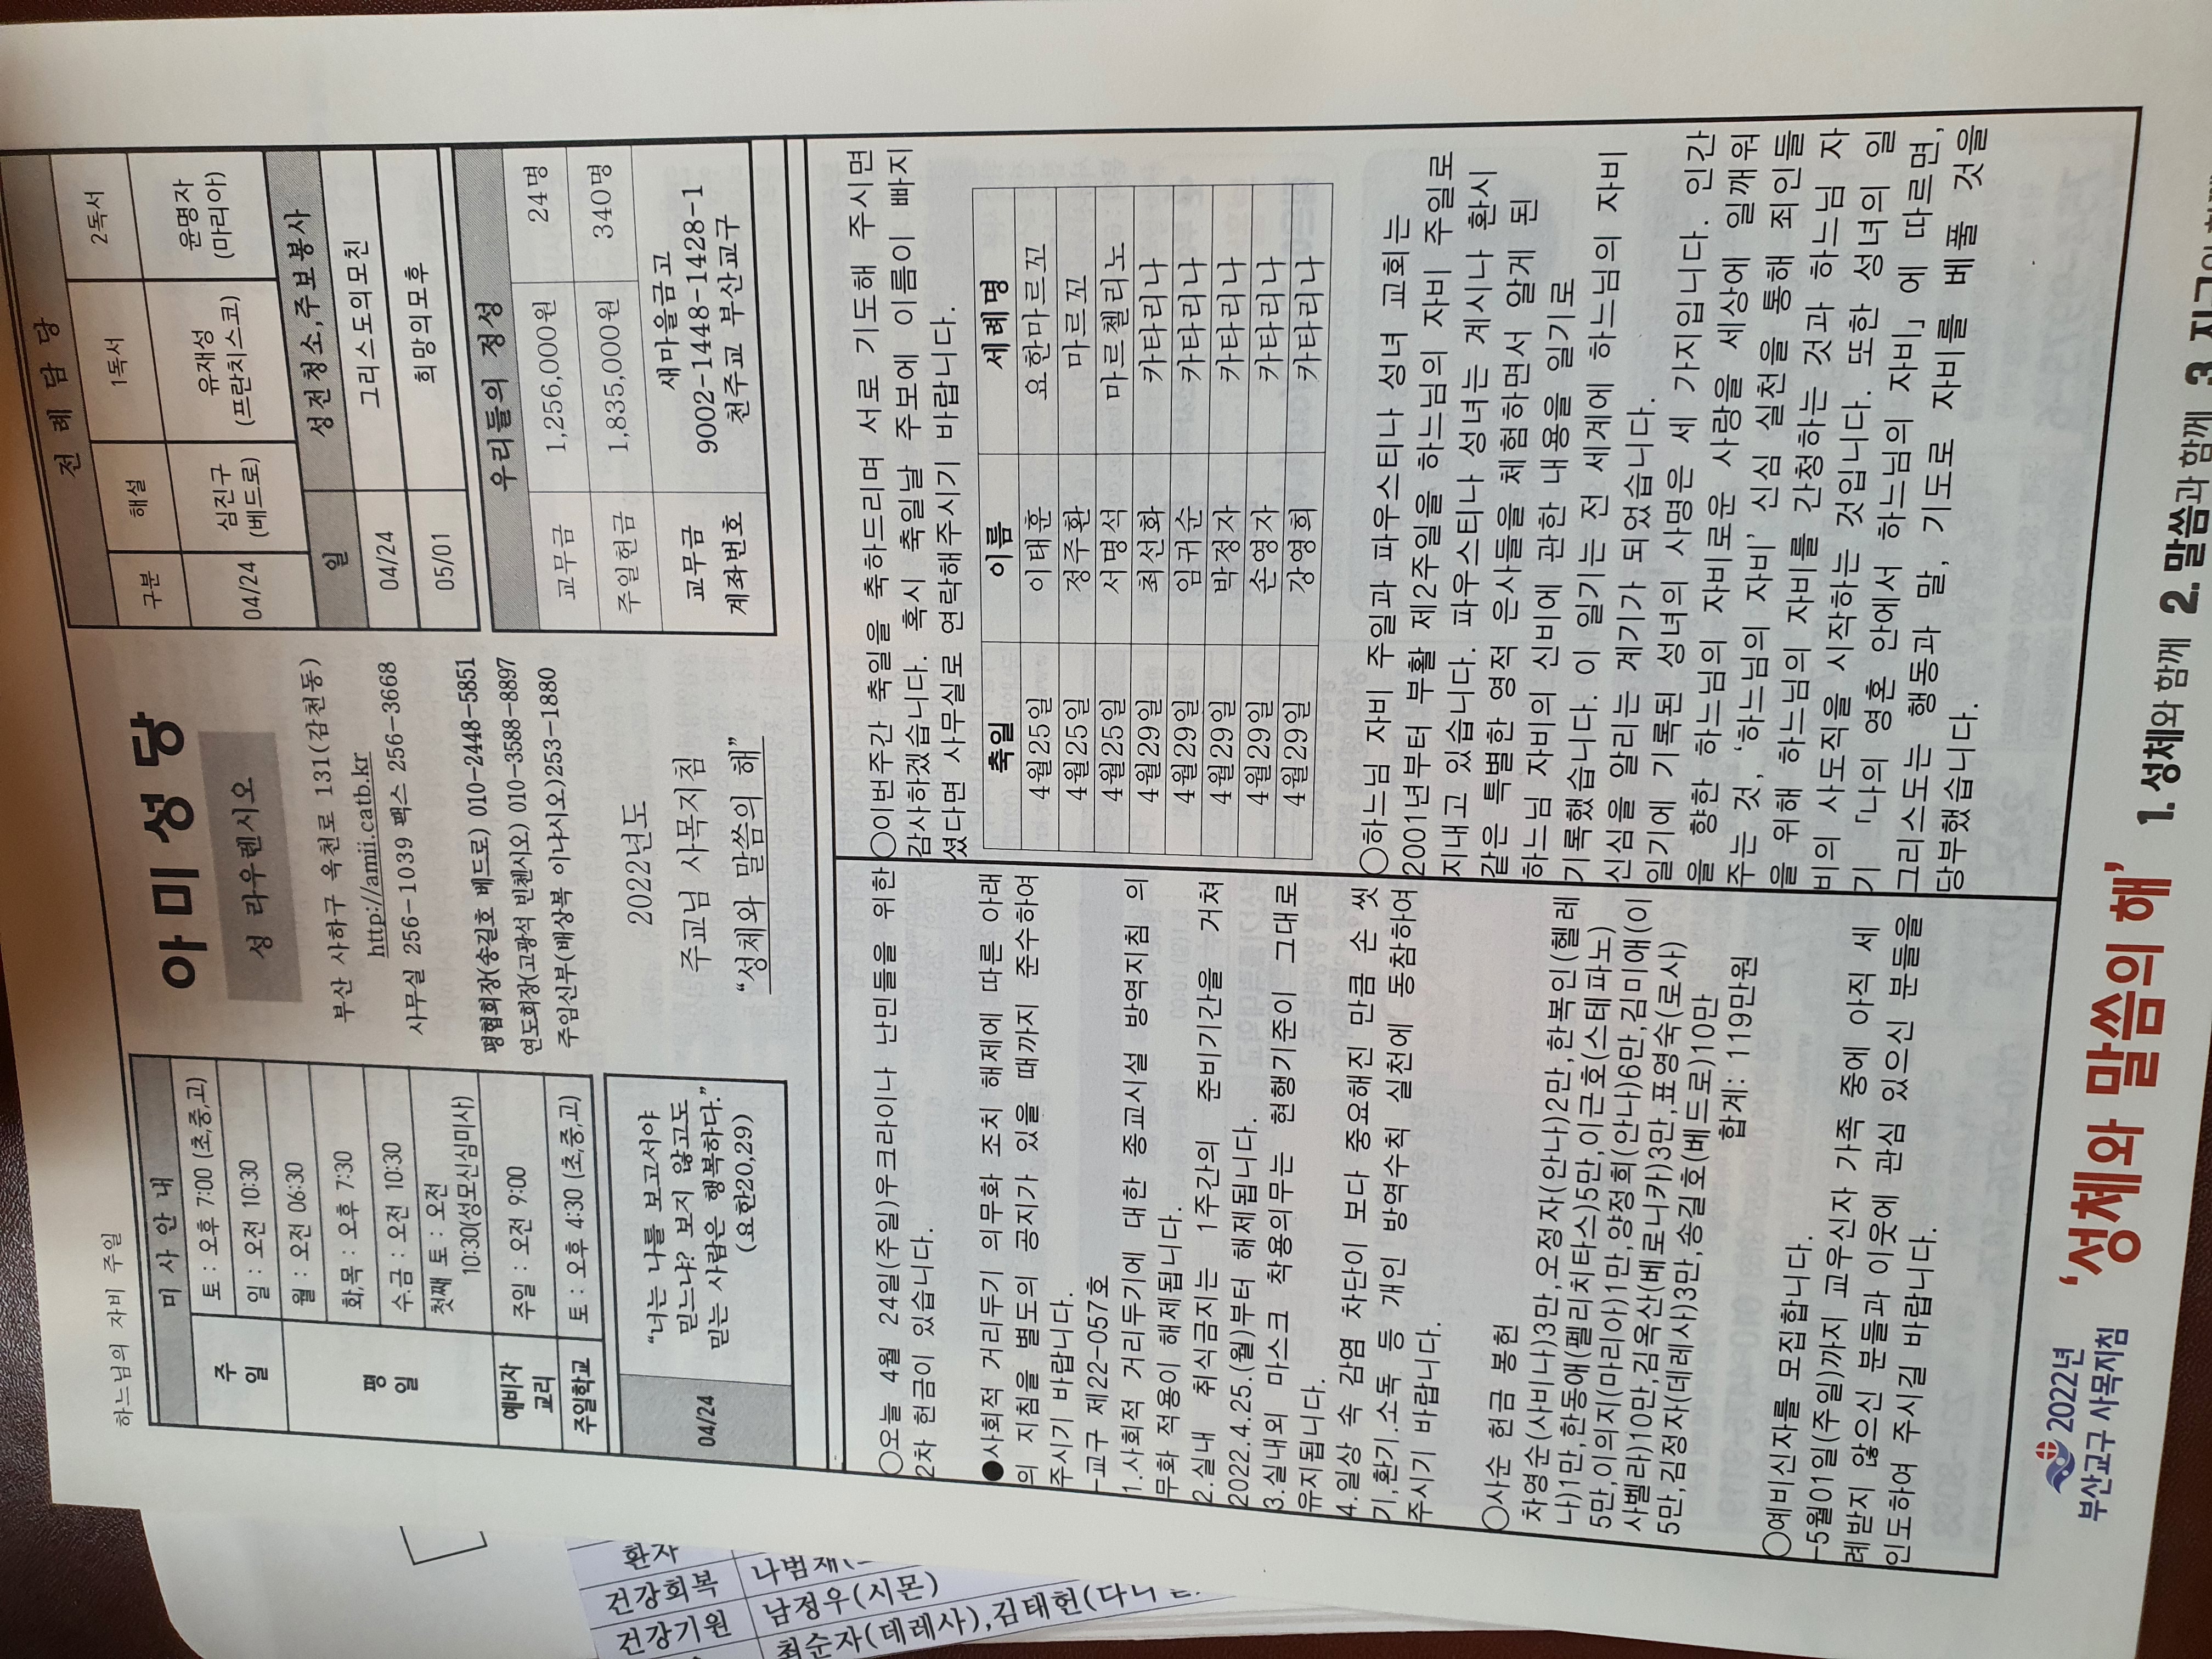 하느님의 자비 주일
미 사 안 내
주일 토 : 오후 7:00 (초,중,고)
일 : 오전 10:30
평일 월 : 오전 06:30
화,목 : 오후 7:30
수.금 : 오전 10:30
첫째 토 : 오전
10:30(성모신심미사)
예비자 교리 주일 : 오전 9:00
주일학교 토 : 오후 4:30 (초,중,고)
04/24
“너는 나를 보고서야
믿느냐? 보지 않고도
믿는 사람은 행복하다.”
(요한20,29)
아 미 성 당
성 라우렌시오
부산 사하구 옥천로 131(감천동)
http://amii.catb.kr
사무실 256-1039 팩스 256-3668
평협회장(송길호 베드로) 010-2448-5851
연도회장(고광석 빈첸시오) 010-3588-8897
주임신부(배상복 이냐시오)253-1880
2022년도
주교님 사목지침
“성체와 말씀의 해”
전 례 담 당
구분 해설 1독서 2독서
04/24 심진구 (베드로) 유재성 (프란치스코) 윤명자 (마리아)
일 성전청소,주보봉사
04/24 그리스도의모친
05/01 희망의모후
우리들의 정성
교무금 1,256,000원 24명
주일헌금 1,835,000원 340명
교무금 계좌번호
새마을금고
9002-1448-1428-1
천주교 부산교구
○오늘 4월 24일(주일)우크라이나 난민들을 위한
2차 헌금이 있습니다.
●사회적 거리두기 의무화 조치 해제에 따른 아래
의 지침을 별도의 공지가 있을 때까지 준수하여
주시기 바랍니다.
-교구 제22-057호
1.사회적 거리두기에 대한 종교시설 방역지침 의
무화 적용이 해제됩니다.
2.실내 취식금지는 1주간의 준비기간을 거쳐
2022.4.25.(월)부터 해제됩니다.
3.실내외 마스크 착용의무는 현행기준이 그대로
유지됩니다.
4.일상 속 감염 차단이 보다 중요해진 만큼 손 씻
기,환기.소독 등 개인 방역수칙 실천에 동참하여
주시기 바랍니다.
○사순 헌금 봉헌
차영순(사비나)3만,오정자(안나)2만,한복인(헬레
나)1만,한동애(펠리치타스)5만,이근호(스테파노)
5만,이의지(마리아)1만,양정희(안나)6만,김미애(이
사벨라)10만,김옥산(베로니카)3만,표영숙(로사)
5만,김정자(데레사)3만,송길호(베드로)10만
합계: 119만원
○예비신자를 모집합니다.
-5월01일(주일)까지 교우신자 가족 중에 아직 세
례받지 않으신 분들과 이웃에 관심 있으신 분들을
인도하여 주시길 바랍니다.
○이번주간 축일을 축하드리며 서로 기도해 주시면
감사하겠습니다. 혹시 축일날 주보에 이름이 빠지
셨다면 사무실로 연락해주시기 바랍니다.
축일 이름 세례명
4월25일 이태훈 요한마르꼬
4월25일 정주환 마르꼬
4월25일 서명석 마르첼리노
4월29일 최선화 카타리나
4월29일 임귀순 카타리나
4월29일 박정자 카타리나
4월29일 손영자 카타리나
4월29일 강영희 카타리나
○하느님 자비 주일과 파우스티나 성녀 교회는
2001년부터 부활 제2주일을 하느님의 자비 주일로
지내고 있습니다. 파우스티나 성녀는 계시나 환시
같은 특별한 영적 은사들을 체험하면서 알게 된
하느님 자비의 신비에 관한 내용을 일기로
기록했습니다. 이 일기는 전 세계에 하느님의 자비
신심을 알리는 계기가 되었습니다.
일기에 기록된 성녀의 사명은 세 가지입니다. 인간
을 향한 하느님의 자비로운 사랑을 세상에 일깨워
주는 것, ‘하느님의 자비’ 신심 실천을 통해 죄인들
을 위해 하느님의 자비를 간청하는 것과 하느님 자
비의 사도직을 시작하는 것입니다. 또한 성녀의 일
기 「나의 영혼 안에서 하느님의 자비」에 따르면,
그리스도는 행동과 말, 기도로 자비를 베풀 것을
당부했습니다.
2022년
부산교구 사목지침
‘성체와 말씀의 해’
1. 성체와 함께 2. 말씀과 함께
환자
건강회복
남정우(시몬)
건강기원
최순자(데레사),김태헌